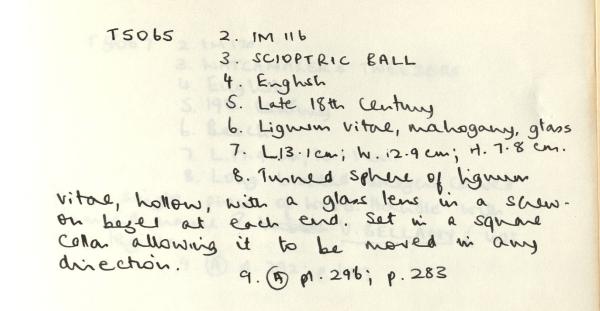 T5065 2. IM 116
3. SCIOPTRIC BALL
4. English
5. Late 18th Century
6. Lignum vitae, mahogany, glass
7. L.13.1cm; W.12.9cm; H.7.8cm.
8. Turned sphere of lignum
vitae, hollow, with a glass lens in a screw-
on bezel at each end. Set in a square
collar allowing it to be moved in any
direction.
9. Ⓐ pl. 296; p. 283